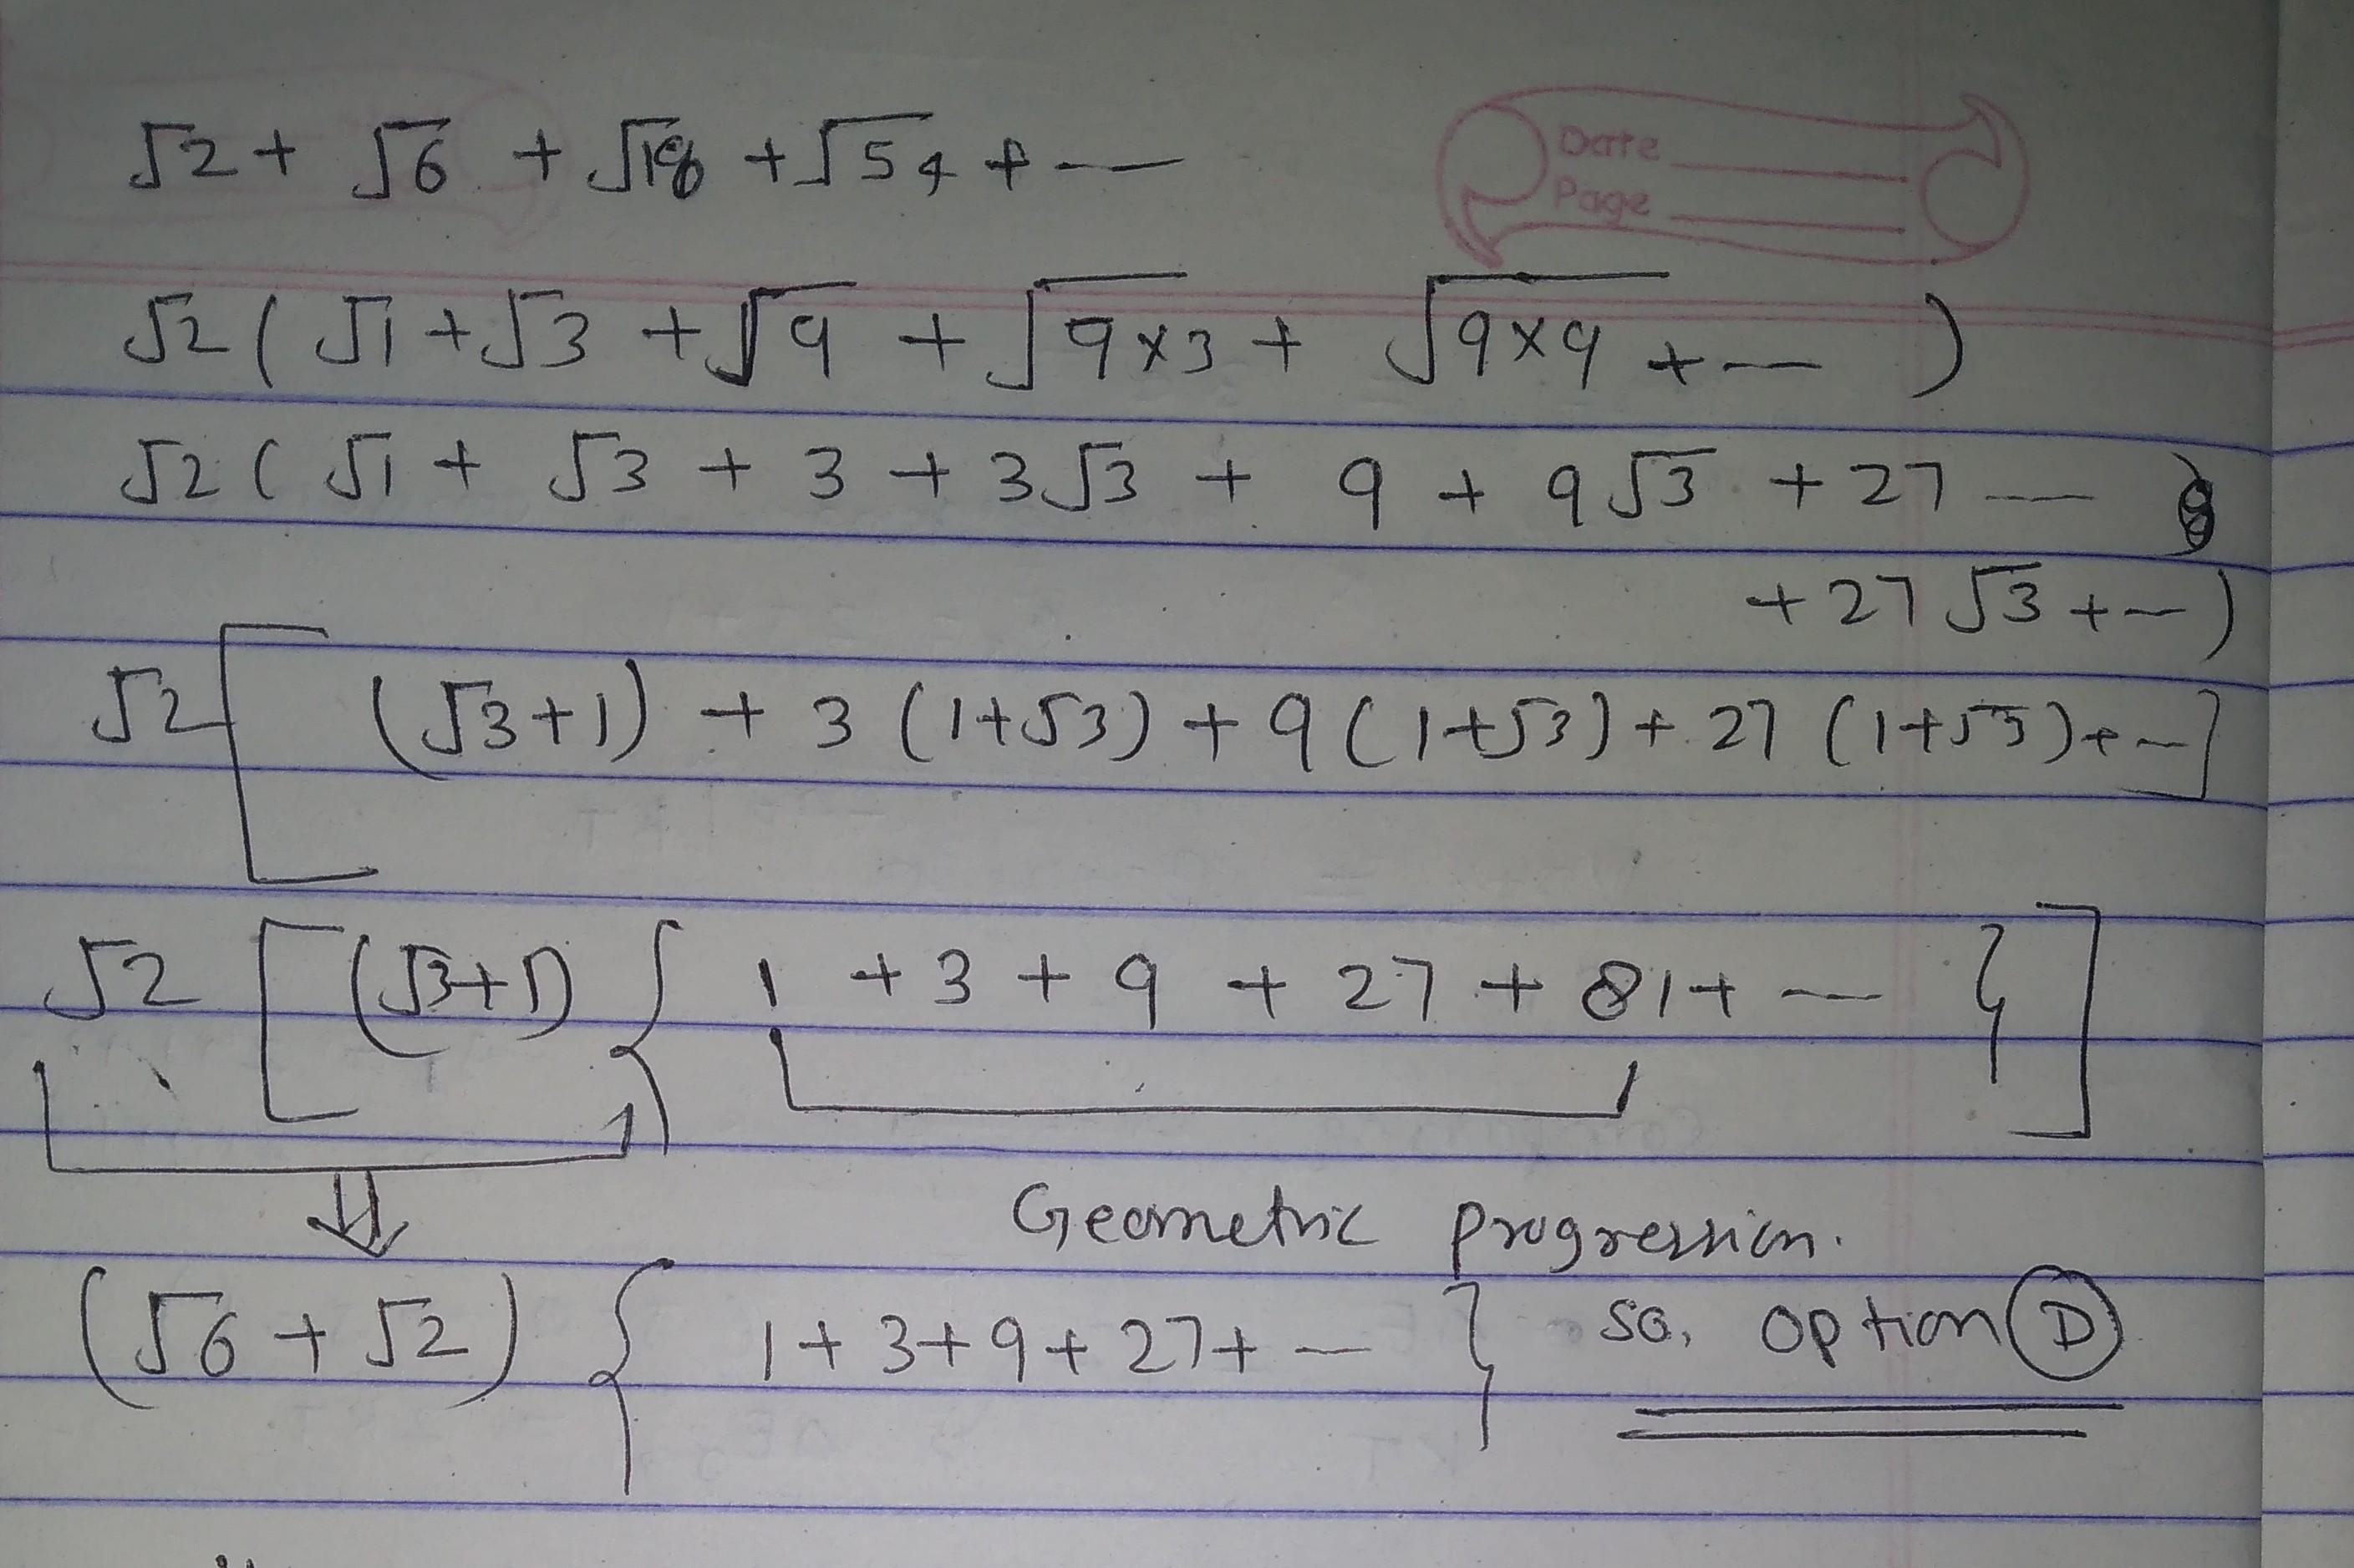 Date
Page
√2 + √6 + √18 + √54 + ---
√2 ( √1 + √3 + √9 + √9×3 + √9×9 + --- )
√2 ( √1 + √3 + 3 + 3√3 + 9 + 9√3 + 27 ---
+ 27√3 + -- )
√2 [ (√3+1) + 3 (1+√3) + 9 (1+√3) + 27 (1+√3) + -- ]
√2 [ (√3+1) { 1 + 3 + 9 + 27 + 81 + --- } ]
⇓
Geometric progression.
(√6 + √2) { 1 + 3 + 9 + 27 + --- } so, option (D)